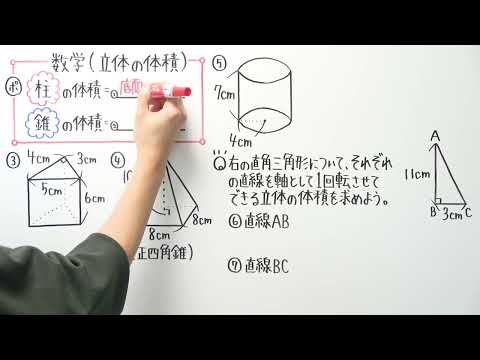 数学(立体の体積)
ポ
柱の体積=①底面
錐の体積=②
③
4cm
3cm
5cm
6cm
④
10
8cm
8cm
正四角錐)
⑤
7cm
4cm
Q右の直角三角形について、それぞれ
の直線を軸として1回転させて
できる立体の体積を求めよう。
⑥直線AB
⑦直線BC
A
11cm
B
3cm
C